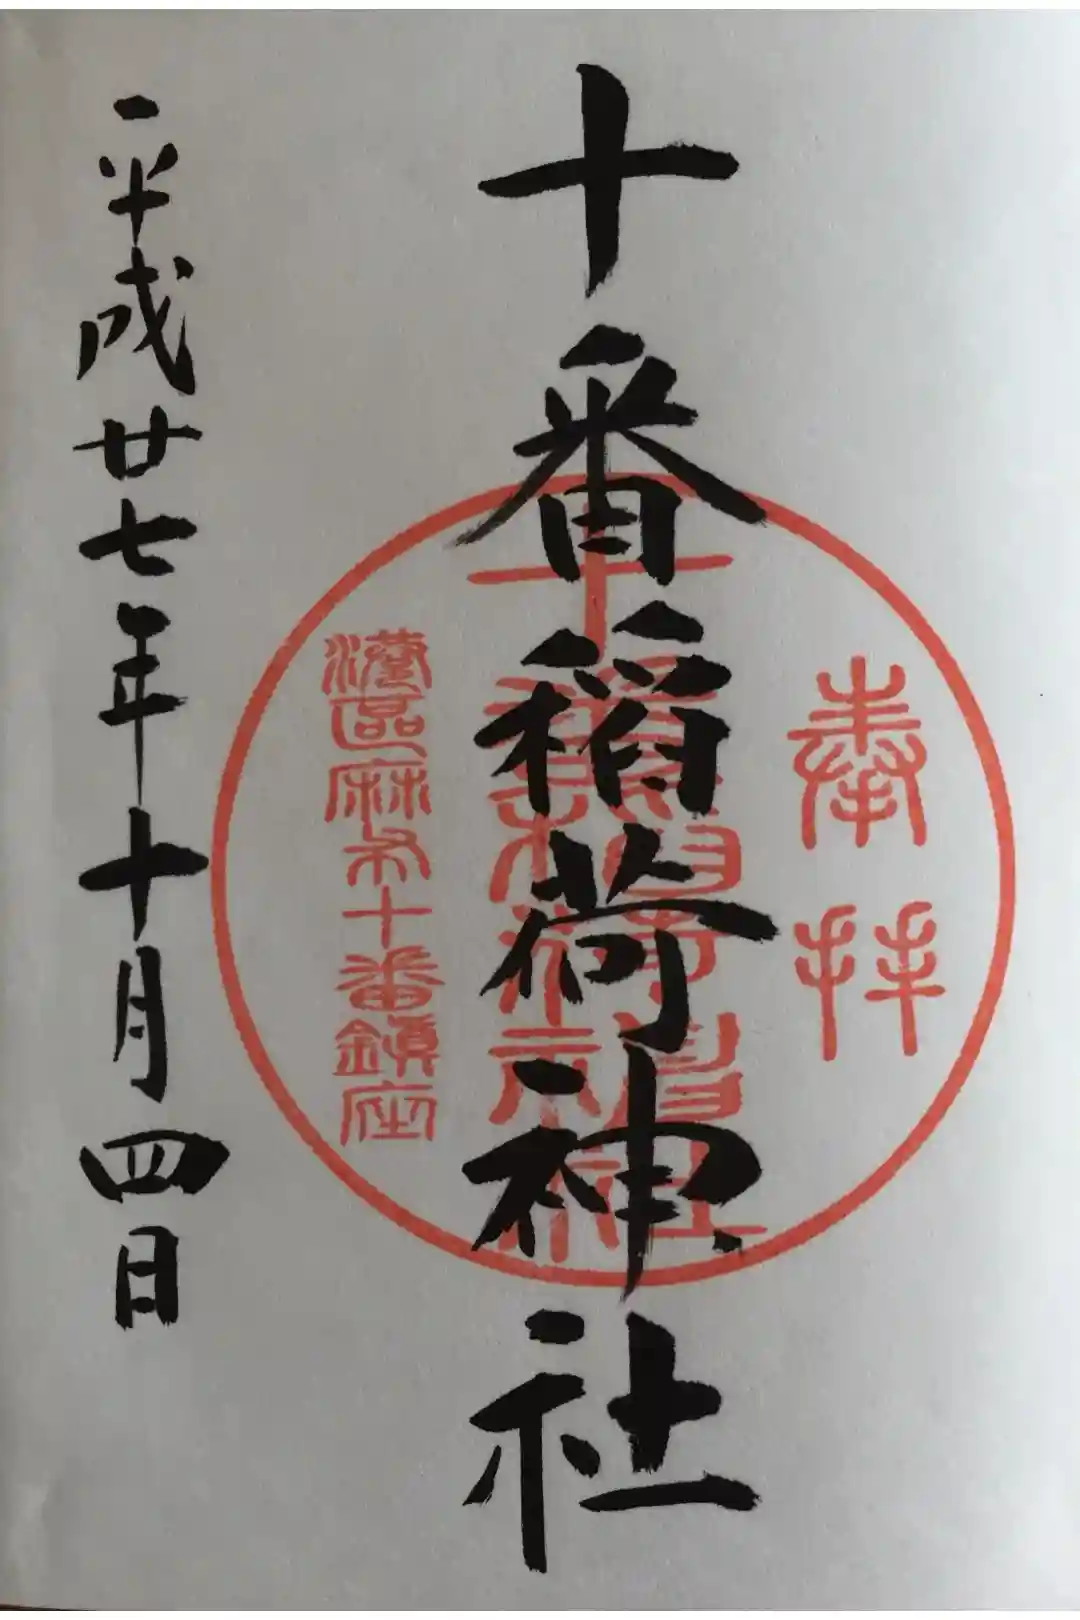 奉拝
十番稲荷神社
十番稲荷神社
港區麻布十番鎮座
平成廿七年十月四日